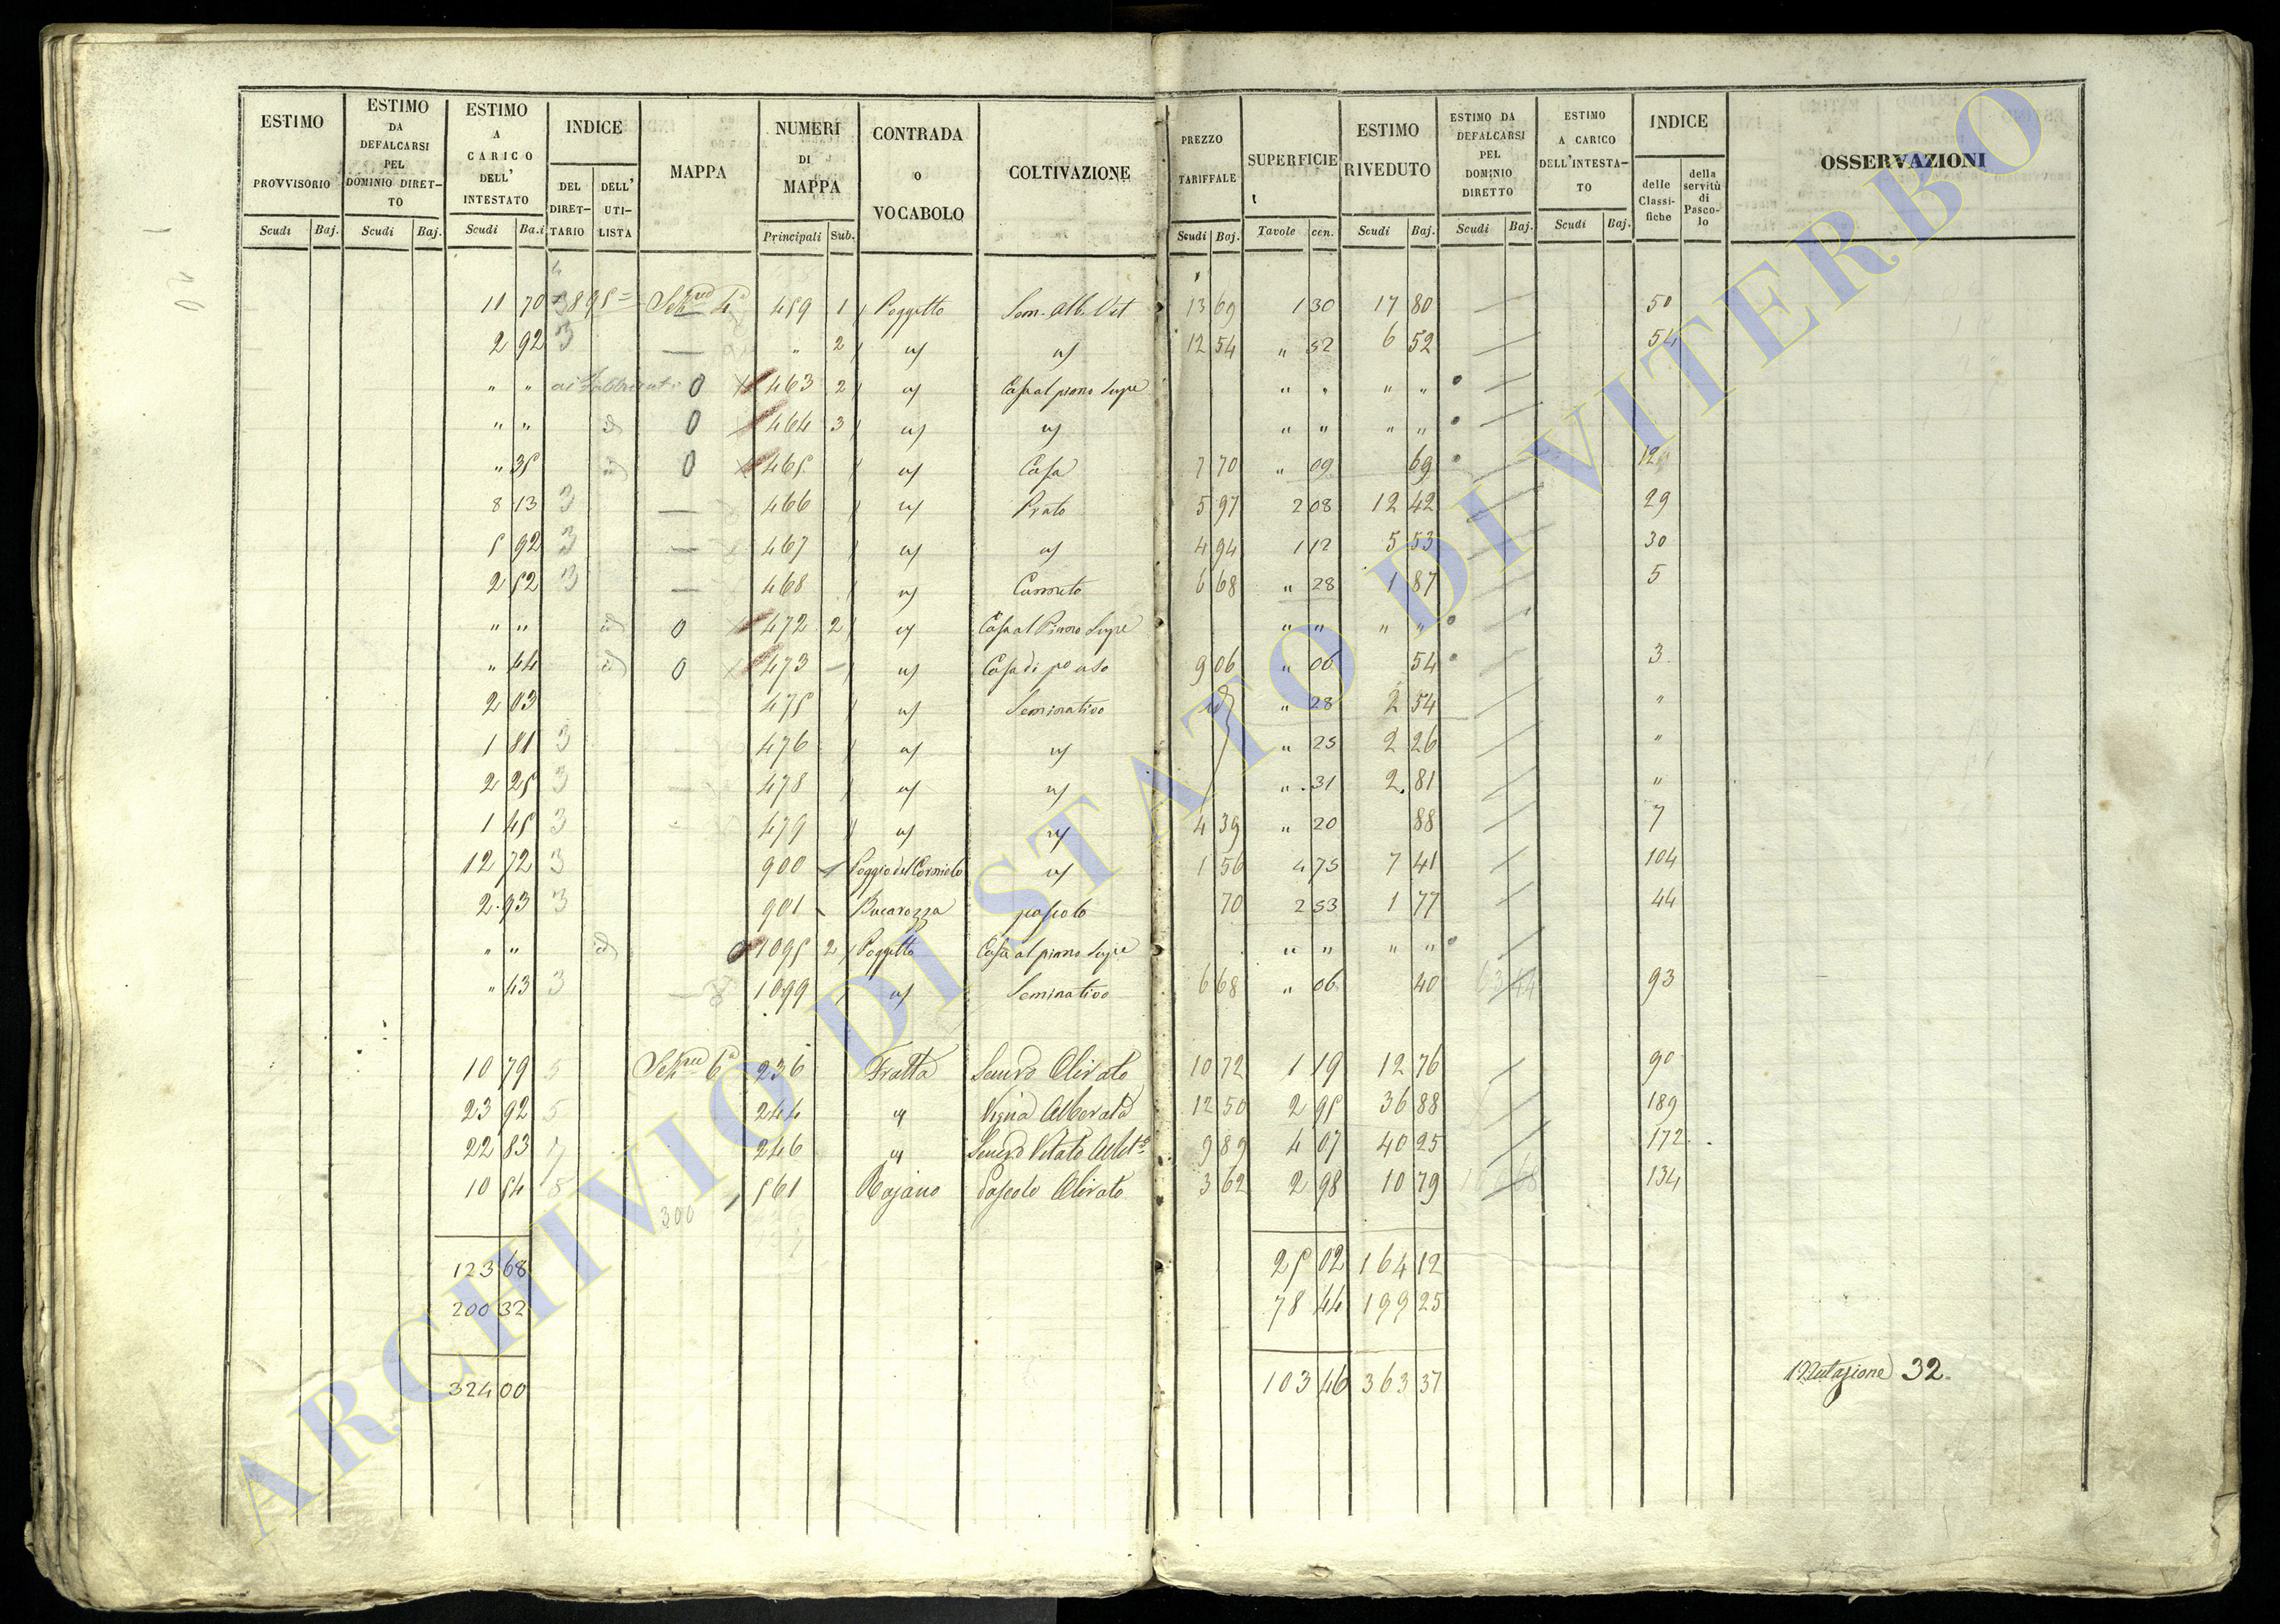 ESTIMO PROVVISORIO Scudi Baj.
ESTIMO DA DEFALCARSI PEL DOMINIO DIRET-TO Scudi Baj.
ESTIMO A CARICO DELL' INTESTATO Scudi Ba.i
INDICE DEL DIRET-TARIO DELL' UTI-LISTA
MAPPA
NUMERI DI MAPPA Principali Sub.
CONTRADA O VOCABOLO
COLTIVAZIONE
PREZZO TARIFFALE Scudi Baj.
SUPERFICIE Tavole cen.
ESTIMO RIVEDUTO Scudi Baj.
ESTIMO DA DEFALCARSI PEL DOMINIO DIRETTO Scudi Baj.
ESTIMO A CARICO DELL'INTESTA-TO Scudi Baj.
INDICE delle Classi-fiche della servitù di Pasco-lo
OSSERVAZIONI
11 70 Sez.ne 4a 459 1 Poggetto Sem. Alb. Vit 13 69 1 30 17 80 — 50
2 92 3 — " 2 " " 12 54 " 52 6 52 — 54
" " ai Fabbricati 0 463 2 " Casa al piano Supe " " " "
" " id 0 464 3 " " " " " "
" 35 id 0 465 " Casa 7 70 " 09 69 12
8 13 3 — 466 " Prato 5 97 2 08 12 42 29
5 92 3 — 467 " " 4 94 1 12 5 53 30
2 52 3 — 468 " Canneto 6 68 " 28 1 87 5
" " id 0 472 2 " Casa al Piano Supe " " " "
" 44 id 0 473 — " Casa di po uso 9 06 " 06 54 3
2 03 475 " Seminativo id " 28 2 54 "
1 81 3 476 " " " 25 2 26 "
2 25 3 478 " " " 31 2 81 "
1 45 3 479 " " 4 39 " 20 88 7
12 72 3 900 Poggio del Cornielo " 1 56 4 75 7 41 104
2 93 3 901 Bucarozza pascolo 70 2 53 1 77 44
" " id 1095 2 Poggetto Casa al piano Supe " " " "
" 43 3 — 1099 " Seminativo 6 68 " 06 40 93
10 79 5 Sez.ne 6a 236 Fratta Semvo Olivato 10 72 1 19 12 76 90
23 92 5 244 " Vigna Alberata 12 50 2 95 36 88 189
22 83 246 " Semvo Vitato Albto 9 89 4 07 40 25 172
10 54 8 561 Rojano Pascolo Olivato 3 62 2 98 10 79 134
300
123 68 25 02 164 12
200 32 78 44 199 25
324 00 103 46 363 37
Mutazione 32
ARCHIVIO DI STATO DI VITERBO